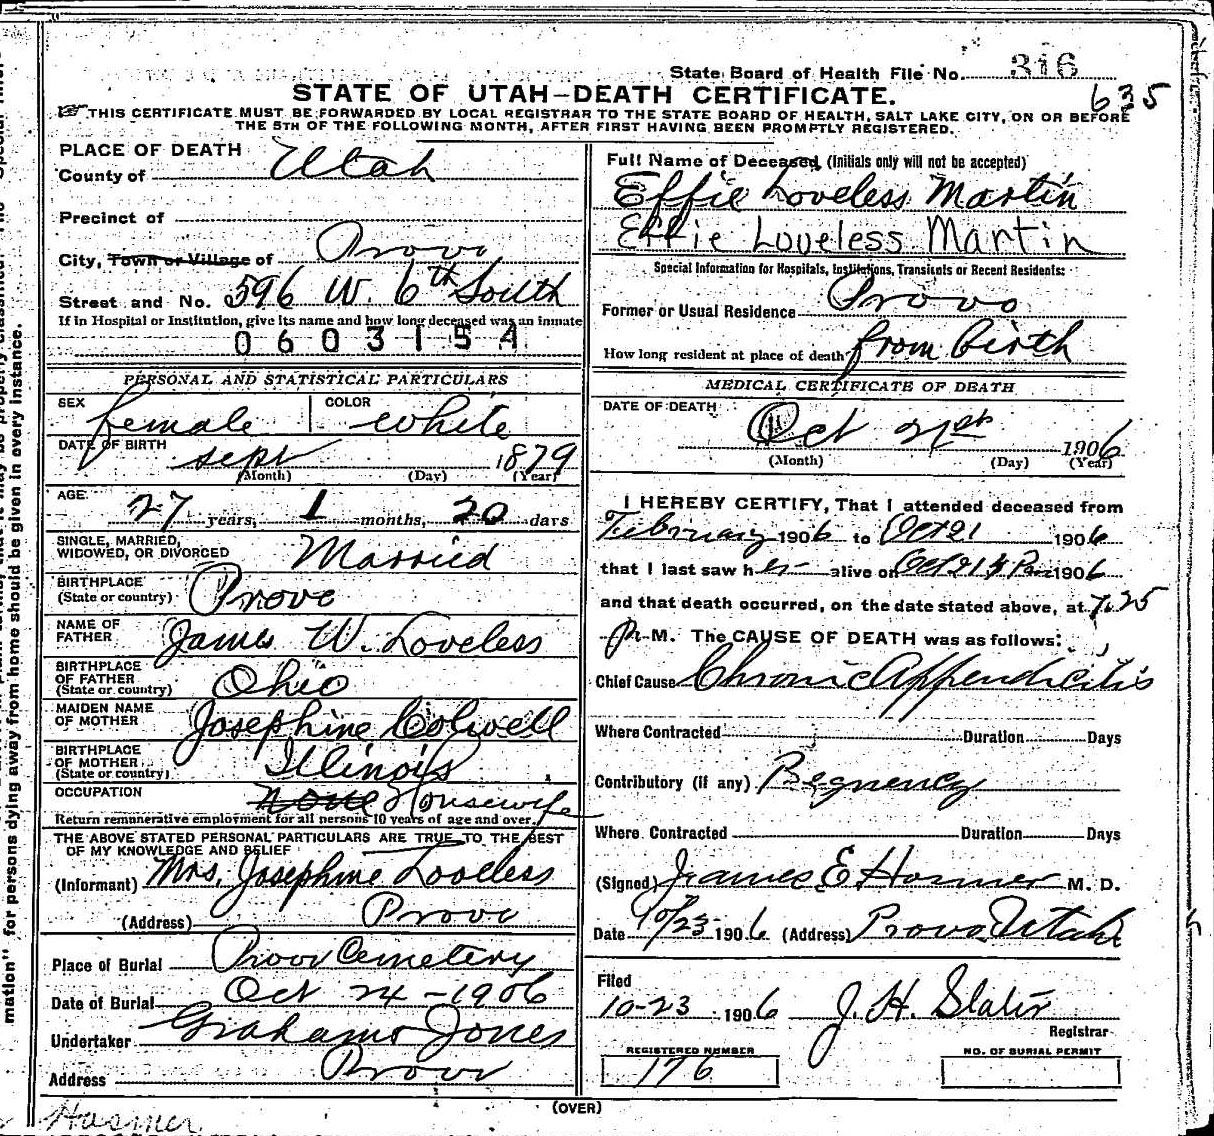 State Board of Health File No. 316
635
STATE OF UTAH—DEATH CERTIFICATE.
THIS CERTIFICATE MUST BE FORWARDED BY LOCAL REGISTRAR TO THE STATE BOARD OF HEALTH, SALT LAKE CITY, ON OR BEFORE
THE 5TH OF THE FOLLOWING MONTH, AFTER FIRST HAVING BEEN PROMPTLY REGISTERED.
PLACE OF DEATH
County of Utah
Precinct of
City, Town or Village of Provo
Street and No. 596 W. 6th South
If in Hospital or Institution, give its name and how long deceased was an inmate
0603154
PERSONAL AND STATISTICAL PARTICULARS
SEX female COLOR white
DATE OF BIRTH sept 1879
(Month) (Day) (Year)
AGE 27 years, 1 months, 20 days
SINGLE, MARRIED,
WIDOWED, OR DIVORCED Married
BIRTHPLACE
(State or country) Provo
NAME OF
FATHER James W. Loveless
BIRTHPLACE
OF FATHER
(State or country) Ohio
MAIDEN NAME
OF MOTHER Josephine Colwell
BIRTHPLACE
OF MOTHER
(State or country) Illinois
OCCUPATION none Housewife
Return remunerative employment for all persons 10 years of age and over.
THE ABOVE STATED PERSONAL PARTICULARS ARE TRUE TO THE BEST
OF MY KNOWLEDGE AND BELIEF
(Informant) Mrs. Josephine Loveless
(Address) Provo
Place of Burial Provo Cemetery
Date of Burial Oct 24-1906
Undertaker Grahams Jones
Address Provo
Full Name of Deceased, (Initials only will not be accepted)
Effie Loveless Martin
Effie Loveless Martin
Special Information for Hospitals, Institutions, Transients or Recent Residents:
Former or Usual Residence Provo
How long resident at place of death from birth
MEDICAL CERTIFICATE OF DEATH
DATE OF DEATH
Oct 21st 1906
(Month) (Day) (Year)
I HEREBY CERTIFY, That I attended deceased from
February 1906 to Oct 21 1906
that I last saw her alive on Oct 21 1906
and that death occurred, on the date stated above, at 7.25
P. M. The CAUSE OF DEATH was as follows:
Chief Cause Chronic Appendicitis
Where Contracted Duration Days
Contributory (if any) Pregnency
Where Contracted Duration Days
(Signed) James E Hosmer M. D.
Date 10/23 1906 (Address) Provo Utah
Filed
10-23 1906 J. H. Slater
Registrar
REGISTERED NUMBER
176
NO. OF BURIAL PERMIT
(OVER)
Hosmer
mation" for persons dying away from home should be given in every instance.